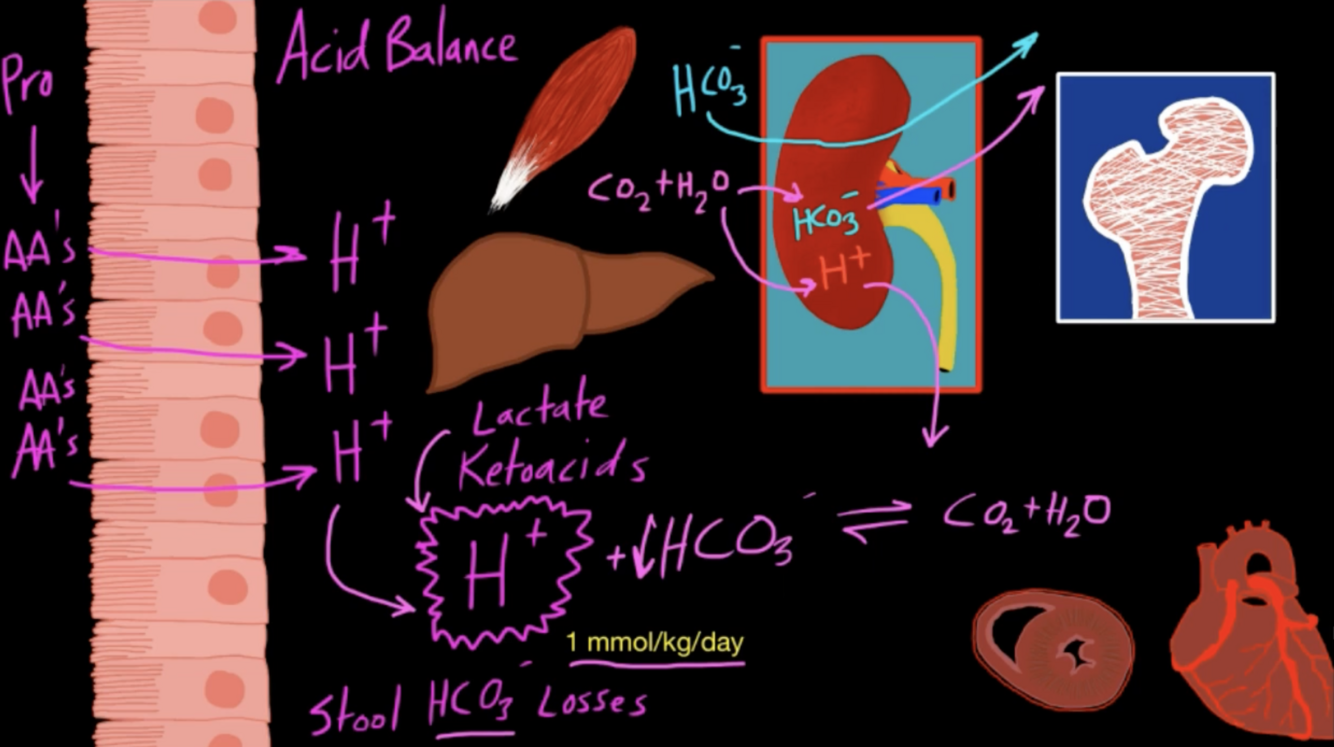 Acid Balance
Pro
AA's
AA's
AA's
AA's
H⁺
H⁺
H⁺
HCO₃⁻
CO₂+H₂O
HCO₃⁻
H⁺
Lactate
Ketoacids
H⁺ + ↓HCO₃⁻ ⇌ CO₂+H₂O
1 mmol/kg/day
Stool HCO₃⁻ Losses